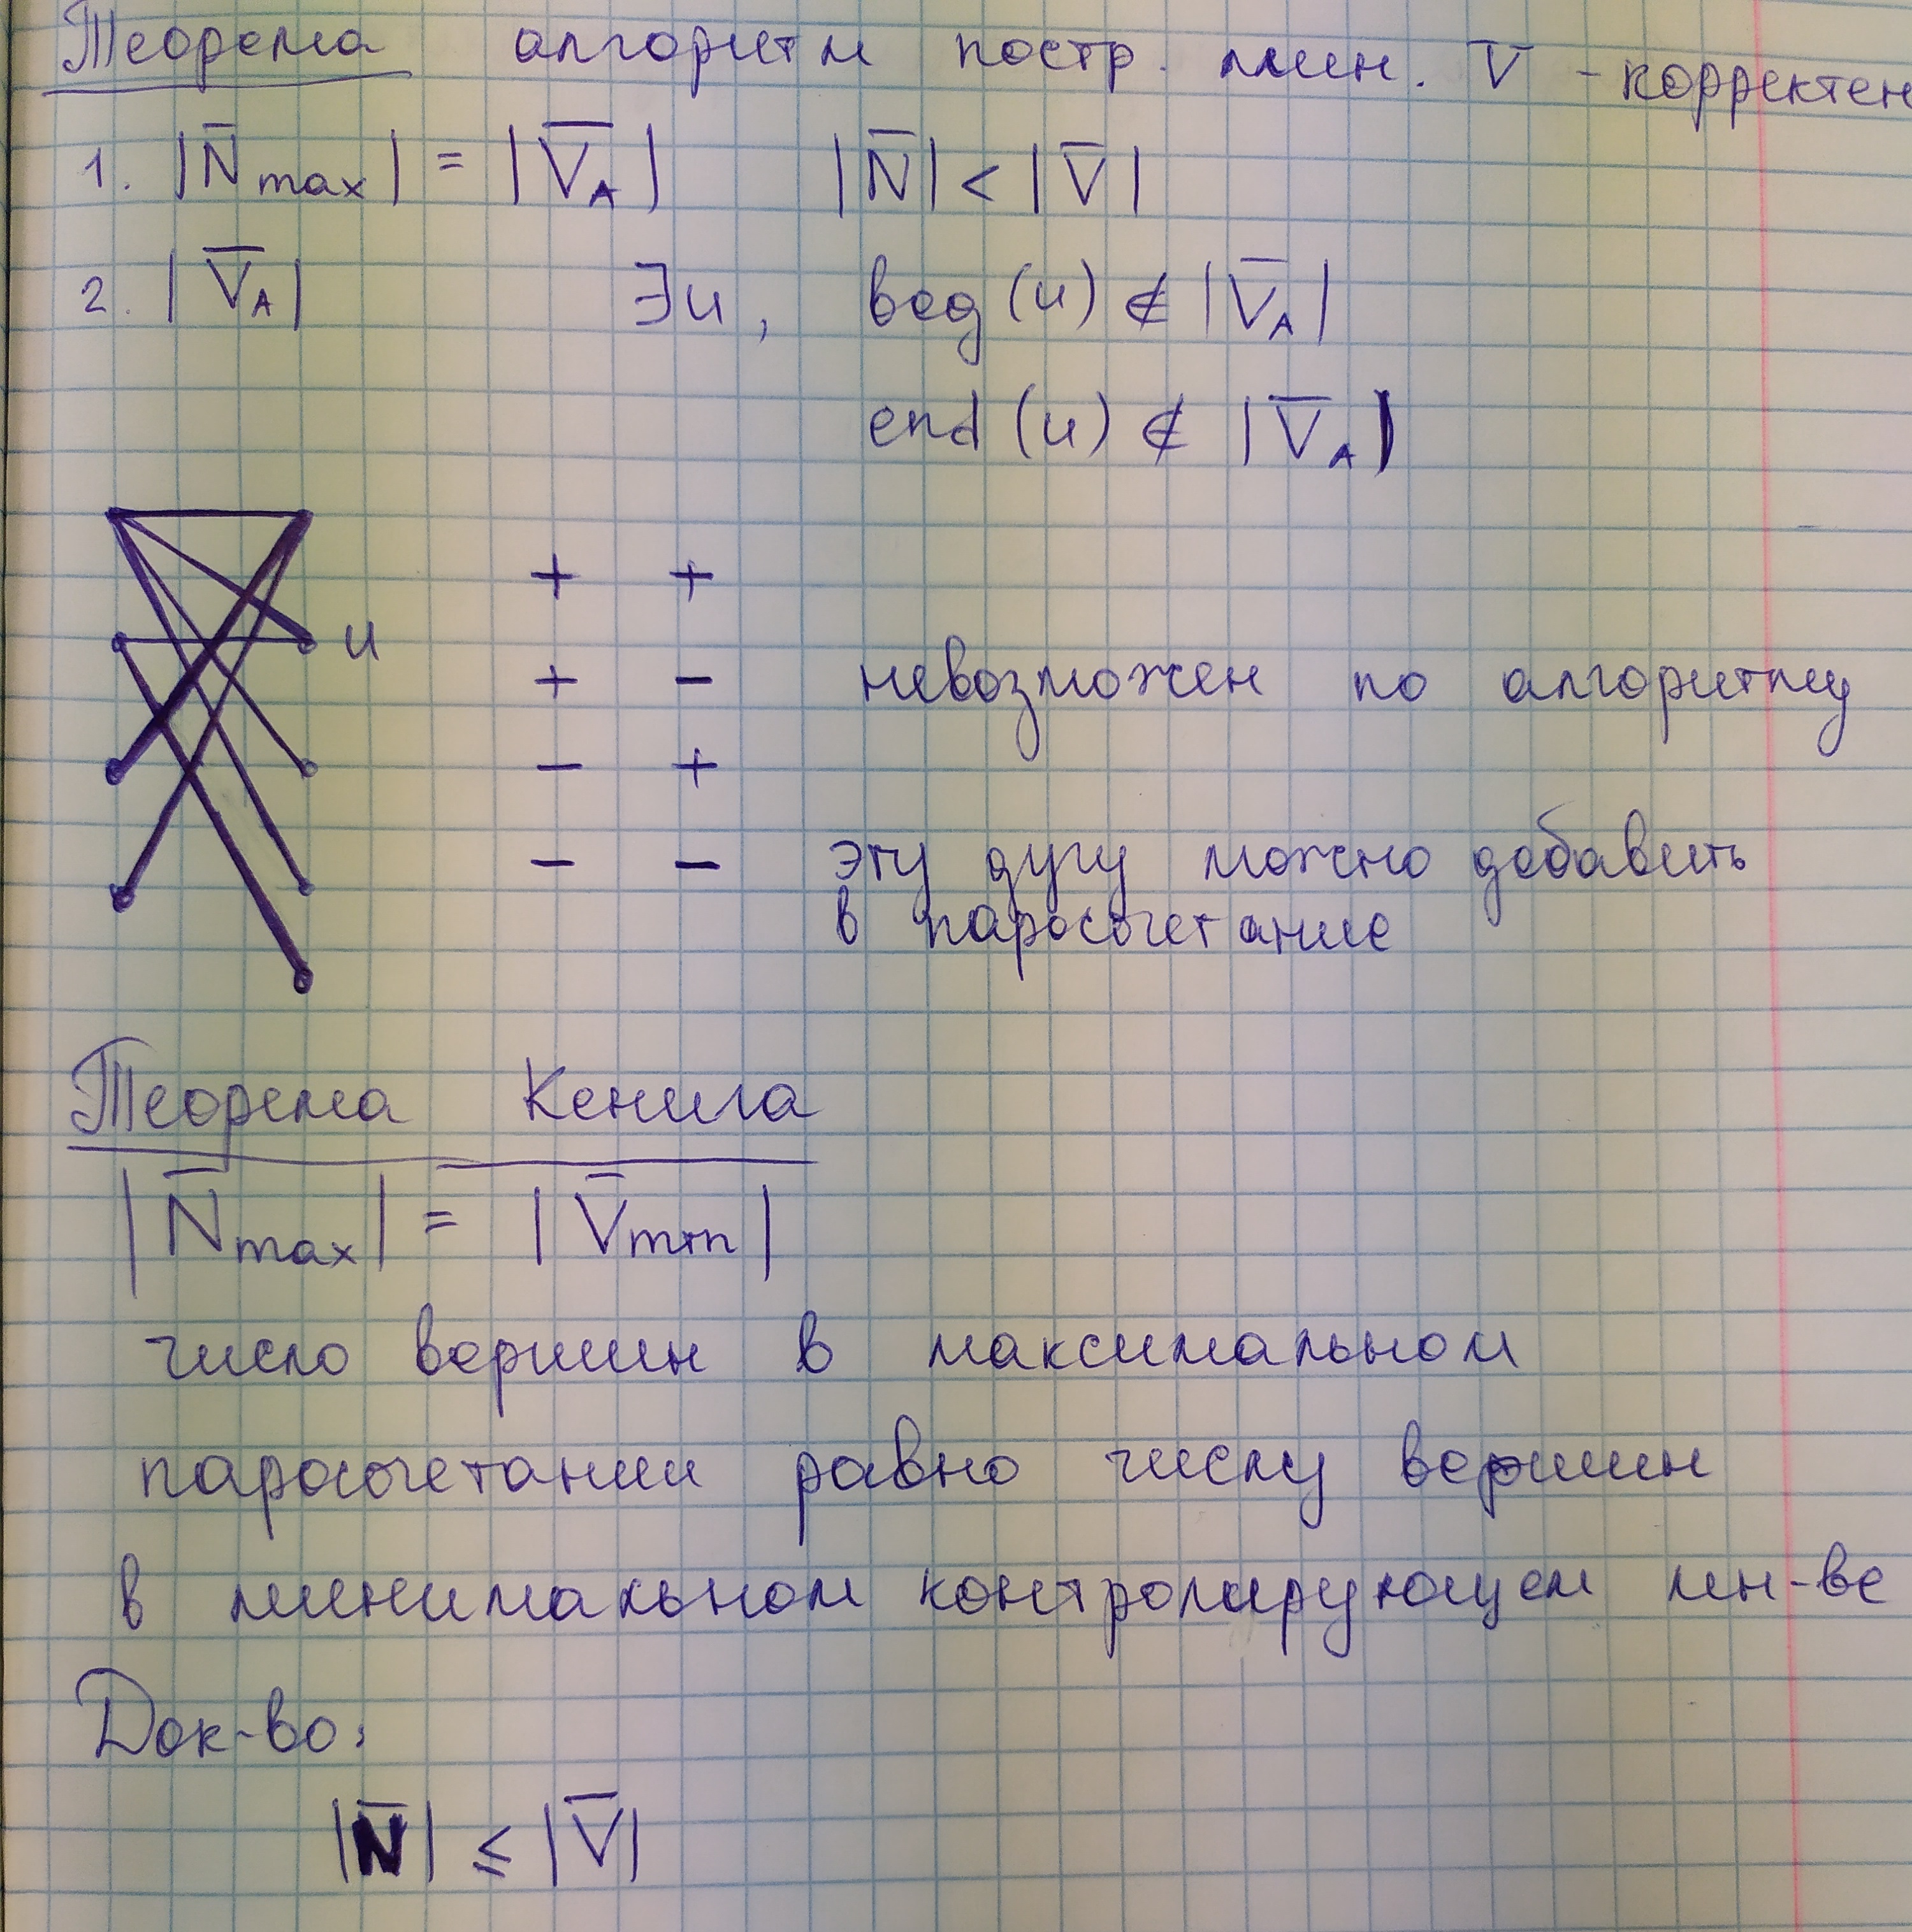 Теорема алгоритм постр. мин. V̅ - корректен
1. |N̅max| = |V̅A| |N̅| < |V̅|
2. |V̅A| ∃u, beg (u) ∉ |V̅A|
end (u) ∉ |V̅A|
+ +
u
+ − невозможен по алгоритму
− +
− − эту дугу можно добавить
в паросочетание
Теорема Кенига
|N̅max| = |V̅min|
число вершин в максимальном
паросочетании равно числу вершин
в минимальном контролирующем мн-ве
Док-во:
|N̅| ≤ |V̅|